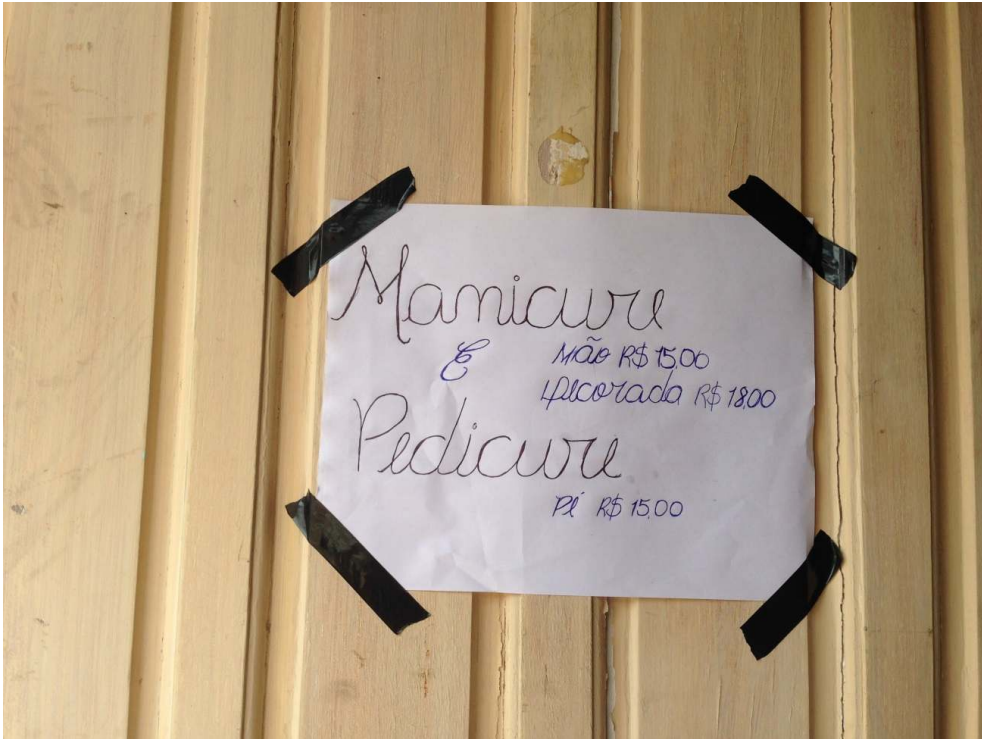 Manicure
E
Mão R$ 15,00
Decorada R$ 18,00
Pedicure
Pé R$ 15,00